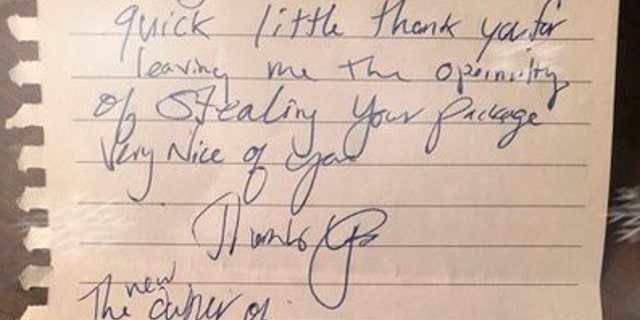 quick little thank you for
leaving me the oppinuilty
of stealing your package
very Nice of you
Thanks
new
The owner of